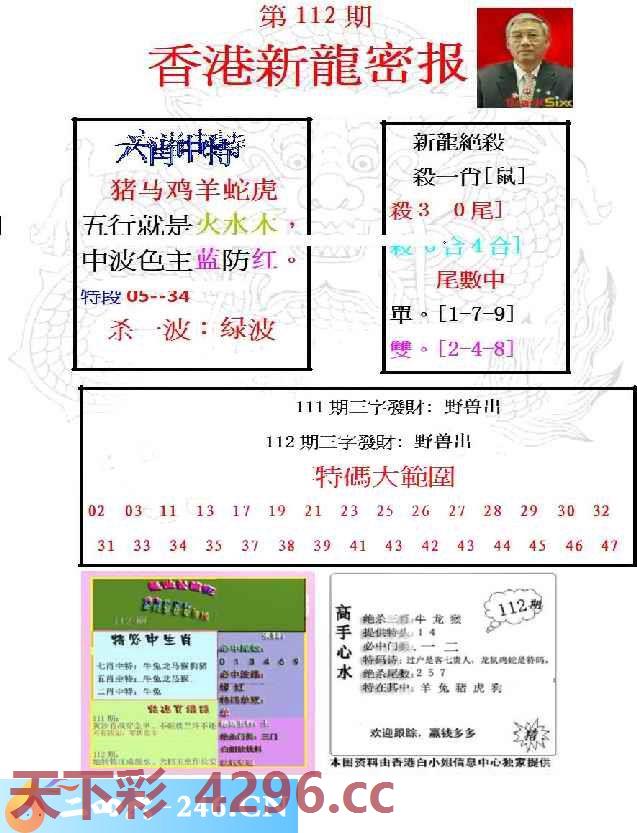 第 112 期
香港新龍密报
六肖中特
猪马鸡羊蛇虎
五行就是火水木，
中波色主蓝防红。
特段 05--34
杀一波：绿波
新龍絕殺
殺一肖[鼠]
殺3 0尾]
合4合]
尾數中
單。[1-7-9]
雙。[2-4-8]
111期三字發財: 野兽出
112期三字發財: 野兽出
特碼大範圍
02 03 11 13 17 19 21 23 25 26 27 28 29 30 32
31 33 34 35 37 38 39 41 43 42 43 44 45 46 47
112期
特必中生肖
七肖中特: 牛兔龙马猴狗猪
五肖中特: 牛兔龙马猴
二肖中特: 牛兔
111期:
112期:
必中波路:
绝杀门数: 三门
高手心水
112期
绝杀三肖: 牛 龙 猴
提供特头: 1 4
必中门数: 一 二
特码诗: 过户是客七贵人，龙鼠鸡蛇是特码。
绝杀尾数: 2 5 7
特在其中: 羊 兔 猪 虎 狗
欢迎跟踪，赢钱多多
本图资料由香港白小姐信息中心独家提供
天下彩 4296.cc
246.CN